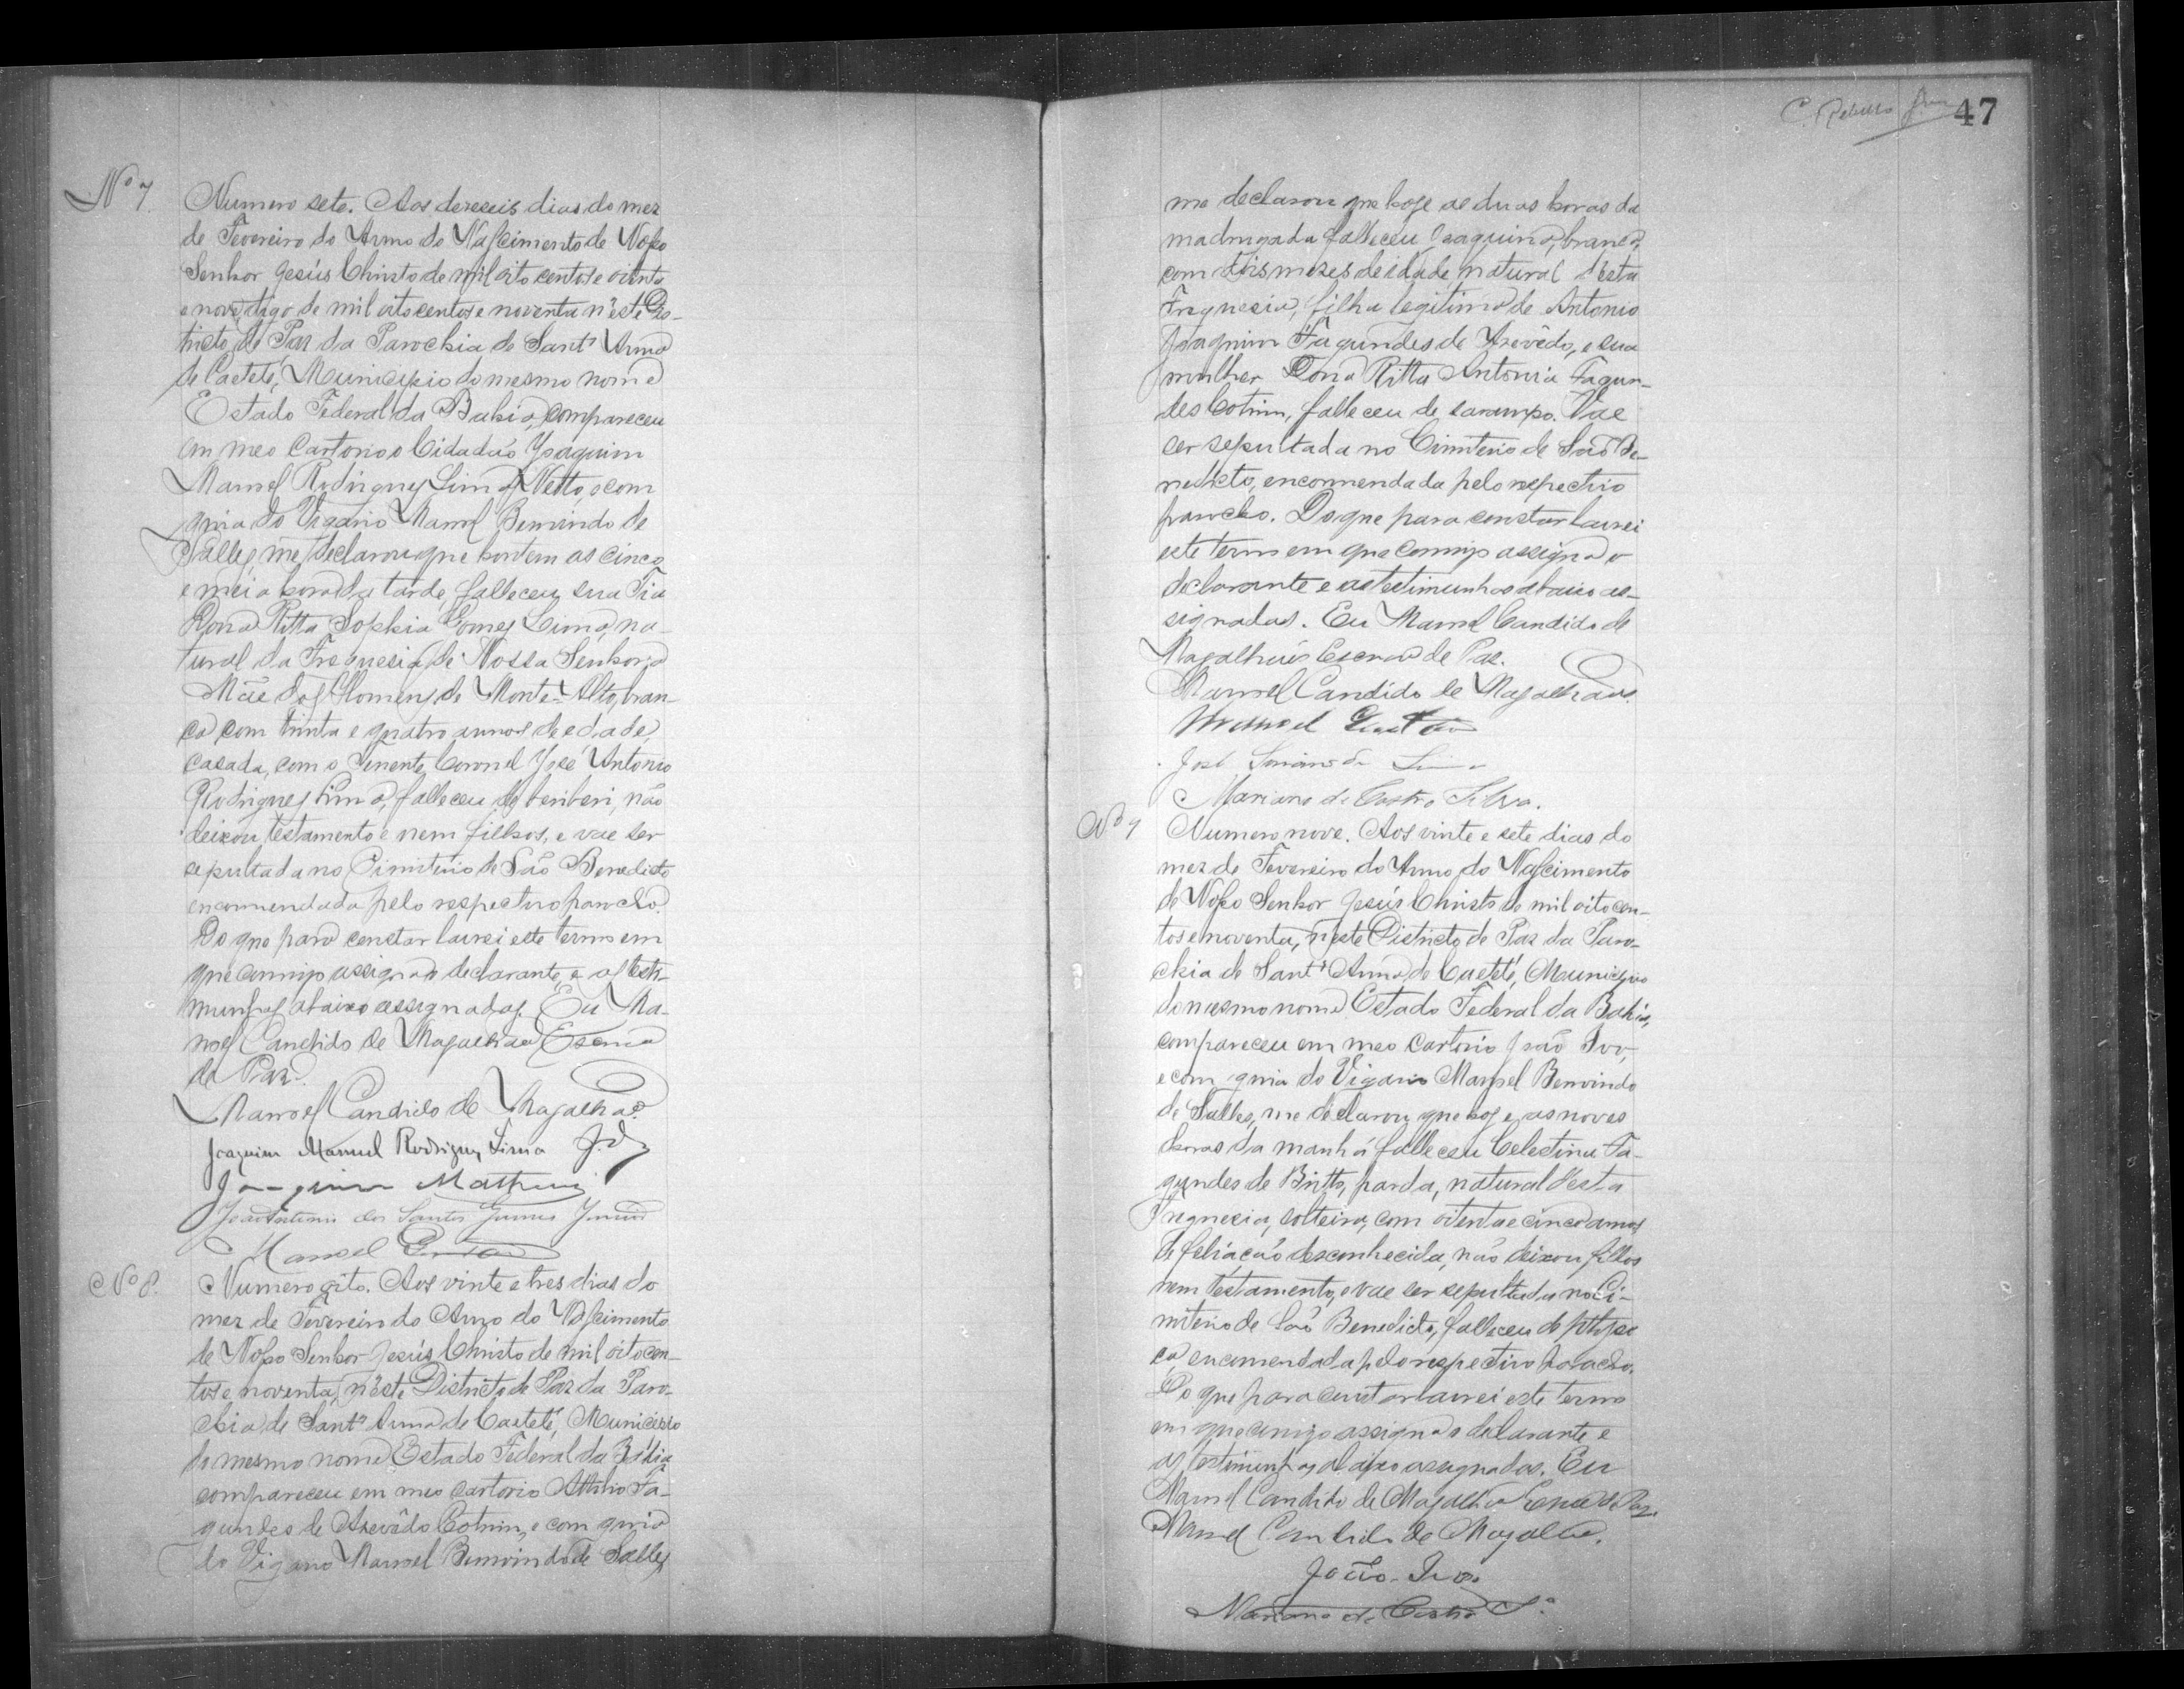 47
Nº 7.
Numero sete. Aos deseseis dias do mez
de Fevereiro do Anno do Nascimento de Nosso
Senhor Jesús Christo de mil oito centos e oitenta
e nove, digo de mil oito centos e noventa n'este Dis-
tricto de Paz da Parochia de Sant'Anna
de Caeteté, Municipio do mesmo nome
Estado Federal da Bahia, compareceu
em meo Cartorio o Cidadão Joaquim
Manoel Rodrigues Lima Netto, e com
guia do Vigario Manoel Benvindo de
Salles, me declarou que hontem as cinco
e meia hora da tarde, falleceu sua Tia
Dona Ritta Sophia Gomes Lima, na-
tural da Freguesia de Nossa Senhora
Mãe dos Homens de Monte-Alto, bran-
ca com trinta e quatro annos de edade,
casada, com o Tenente Coronel José Antonio
Rodrigues Lima, falleceu de beriberi, não
deixou testamento e nem filhos, e vae ser
sepultada no Cimiterio de São Benedicto
encommendada pelo respectivo parocho.
Do que para constar lavrei este termo em
que commigo assigna o declarante, e as teste-
munhas abaixo assignadas. Eu Ma-
noel Candido de Magalhães Escrivão
de Paz.
Manoel Candido de Magalhães
Joaquim Manuel Rodrigues Lima
Joaquim Matheus
João Antonio dos Santos Gumes Junior
Manoel
Nº 8.
Numero oito. Aos vinte e tres dias do
mez de Fevereiro do Anno do Nascimento
de Nosso Senhor Jesús Christo de mil oito cen-
tos e noventa, n'este Districto de Paz da Paro-
chia de Sant'Anna de Caeteté, Municipio
do mesmo nome Estado Federal da Bahia
compareceu em meo cartorio Attilio Fa-
gundes de Azevêdo Cotrim, e com guia
do Vigario Manoel Benvindo de Salles
me declarou que hoje as duas horas da
madrugada falleceu Joaquina, branca,
com dois mezes de idade, natural d'esta
Freguesia, filha legitima de Antonio
Joaquim Fagundes de Azevêdo, e sua
mulher Dona Ritta Antonia Fagun-
des Cotrim, falleceu de sarampo. Vae
ser sepultada no Cimiterio de São Be-
nedicto, encommendada pelo respectivo
parocho. Do que para constar lavrei
este termo em que commigo assigna o
declarante e as testimunhas abaixo as-
signadas. Eu Manoel Candido de
Magalhães Escrivão de Paz.
Manoel Candido de Magalhães.
Manoel
José
Mariano de Castro Silva.
Nº 9
Numero nove. Aos vinte e sete dias do
mez de Fevereiro do Anno do Nascimento
de Nosso Senhor Jesús Christo de mil oito cen-
tos e noventa, n'este Districto de Paz da Paro-
chia de Sant'Anna de Caeteté, Municipio
do mesmo nome Estado Federal da Bahia,
compareceu em meo cartorio João Ivo,
e com guia do Vigario Manoel Benvindo
de Salles, me declarou que hoje, as noves
horas da manhã falleceu Celestina Fa-
gundes de Britto, parda, natural d'esta
Freguesia, solteira, com oitenta e cinco annos
de feliação desconhecida, não deixou filhos
nem testamento, e vae ser sepultada no Ci-
miterio de São Benedicto, falleceu de
encomendada pelo respectivo parocho.
Do que para constar lavrei este termo
em que comigo assigna o declarante e
as testimunhas abaixo assignadas. Eu
Manoel Candido de Magalhães Escrivão de Paz.
Manoel Candido de Magalhães.
João Ivo
Mariano de Castro Sª